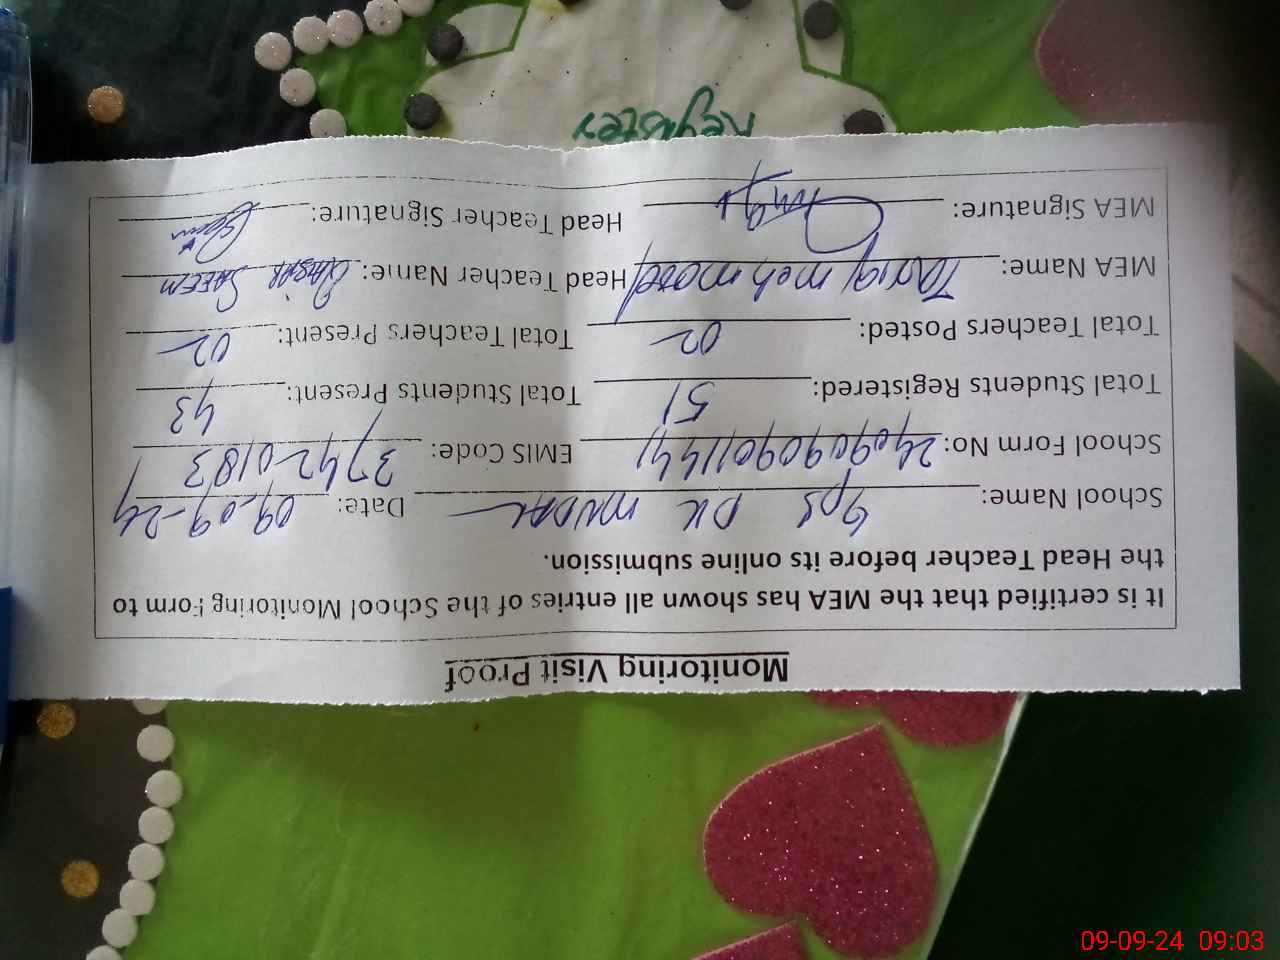 Register
Monitoring Visit Proof
It is certified that the MEA has shown all entries of the School Monitoring Form to
the Head Teacher before its online submission.
School Name: GPS DK MNDAL Date: 09-09-24
School Form No: 24090909011441 EMIS Code: 37420183
Total Students Registered: 51 Total Students Present: 43
Total Teachers Posted: 02 Total Teachers Present: 02
MEA Name: Tariq mehmood Head Teacher Name: SALEEM
MEA Signature: Head Teacher Signature:
09-09-24 09:03